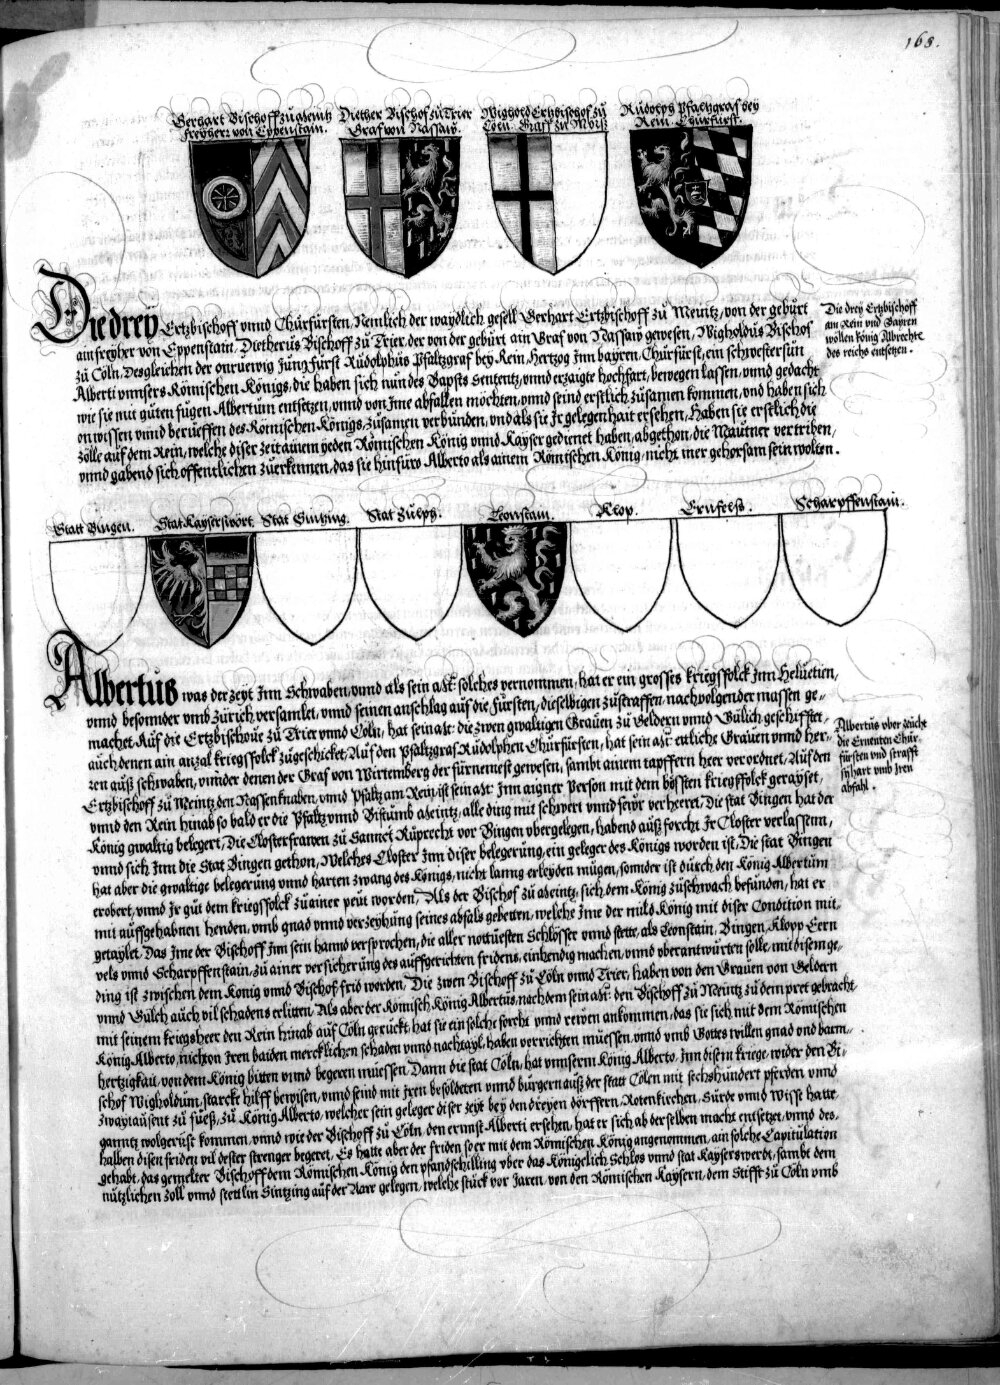 168.
Gerhart Bischoff zu Meintz
freyherr von Eppenstain.
Diether Bischof zu Trier
Graf von Nassaw.
Wigbold Ertzbischof zu
Cöln
Rudolph Pfaltzgraf bey
Rein. Churfürst.
Die drey Ertzbischoff vnnd Churfürsten, Nemlich der waydlich gesell Gerhart Ertzbischoff zu Meintz, von der gebürt
ain freyher von Eppenstain, Dietherus Bischoff zu Trier, der von der gebürt ain Graf von Nassaw gewesen, Wigholdus Bischof
zu Cöln, Desgleichen der onruewig Jung fürst Rudolphus Pfaltzgraf bey Rein, Hertzog Inn bayren, Churfürst, ein schwester sun
Alberti vnnsers Römischen Königs, die haben sich nun des Bapsts Sententz, vnnd erzaigte hochfart, bewegen lassen, vnnd gedacht
wie sie mit guten fugen Albertum entsetzen, vnnd von Ime abfallen möchten, vnnd seind erstlich zusamen kommen, vnd haben sich
on wissen vnnd berueffen des Römischen Königs, zusamen verbunden, vnd als sie Ir gelegenhait ersehen, Haben sie erstlich die
zölle auf dem Rein, welche diser zeit ainem yeden Römischen König vnnd Kayser gedienet haben, abgethon, die Mautner vertriben,
vnnd gabend sich offentlichen zuerkennen, das sie hinfuro Alberto als ainem Römischen König, nicht mer gehorsam sein wolten.
Die drey Ertzbischoff
am Rein vnd Bayren
wöllen König Albrecht
des reichs entsetzen.
Statt Bingen. Stat Kayserswört. Stat Sintzing. Stat Zülpg. Leonstain. Klop. Ernfels. Scharpffenstain.
Albertus was der zeyt Inn Schwaben, vnnd als sein Mt: solches vernommen, hat er ein grosses kriegsfolck Inn Heluetien,
vnnd besonnder vmb Zürich versamlet, vnnd seinen anschlag auf die Fürsten, dieselbigen zustraffen, nachvolgender massen ge-
machet. Auf die Ertzbischoue zu Trier vnnd Cöln, hat sein Mt: die zwen gwaltigen Grauen zu Geldern vnnd Gülich geschifftet,
auch denen ain anzal kriegsfolck zugeschicket, Auf den Pfaltzgraf Rudolphen Churfürsten, hat sein Mt: ettliche Grauen vnnd her-
ren auß schwaben, vnnder denen der Graf von Wirtemberg der fürnemest gewesen, sambt ainem tapffern heer verordnet, Auf den
Ertzbischoff zu Meintz den Nassenknaben, vnnd Pfaltz am Rein, ist sein Mt: Inn aigner Person mit dem bössten kriegsfolck gerayset,
vnnd den Rein hinab so bald er die Pfaltz vnnd Bistumb Meintz, alle ding mit schwert vnnd fewr verheeret, Die stat Bingen hat der
König gwaltig belegert, Die Closterfrawen zu Sannct Ruprecht vor Bingen vbergelegen, habend auß forcht Ir Closter verlassenn,
vnnd sich Inn die Stat Bingen gethon, Welches Closter Inn diser belegerung, ein geleger des Königs worden ist, Die stat Bingen
hat aber die gwaltige belegerung vnnd harten zwang des Königs, nicht lanng erleyden mügen, sonnder ist durch den König Albertum
erobert, vnnd Ir gut dem kriegsfolck zu ainer peut worden, Als der Bischof zu Meintz, sich dem König zuschwach befunden, hat er
mit auffgehabnen henden, vmb gnad vnnd verzeyhung seines abfals gebetten, welche Ime der mild König mit diser Condition mit-
getaylet, Das Ime der Bischoff Inn sein hannd versprochen, die aller nottuesten Schlösser vnnd stette, als Leonstain, Bingen, Klopp Eern
vels vnnd Scharpffenstain, zu ainer versicherung des auffgerichten fridens, einhendig machen, vnnd vberantwurten solle, mit disem ge-
ding ist zwischen dem König vnnd Bischof frid worden, Die zwen Bischoff zu Cöln vnnd Trier, haben von den Grauen von Geldern
vnnd Gülch auch vil schadens erlitten, Als aber der Römisch König Albertus, nachdem sein Mt: den Bischoff zu Meintz zu dem pret gebracht
mit seinem kriegsheer den Rein hinab auf Cöln geruckt, hat sie ein solche forcht vnnd rewen ankommen, das sie sich mit dem Römischen
König Alberto, nicht on Iren baiden mercklichen schaden vnnd nachtayl, haben verrichten müessen, vnnd vmb Gottes willen gnad vnd barm-
hertzigkait, von dem König bitten vnnd begeren müessen, Dann die stat Cöln, hat vnnserm König Alberto, Inn disem kriege, wider den Bi-
schof Wigholdum, starcke hilff bewisen, vnnd seind mit Iren besoldeten vnnd burgern auß der statt Cölen mit sechshundert pferden vnnd
zwaytausent zu fueß, zu König Alberto, welcher sein geleger diser zeyt bey den dreyen dörffern, Rotenkirchen, Sürde vnnd Wisse hatte
ganntz wolgerüst kommen, vnnd wie der Bischoff zu Cöln, den ernnst Alberti ersehen, hat er sich ab derselben macht entsetzet, vnnd des-
halben disen friden vil dester strenger begeret, Es hatte aber der friden so er mit dem Römischen König angenommen, ain solche Capitulation
gehabt, das gemelter Bischoff dem Römischen König den pfandschilling vber das Königelich Schlos vnnd stat Kayserswerdt, sambt dem
nutzlichen zoll vnnd stettlin Sintzing auf der Aare gelegen, welche stück vor Jaren, von den Römischen Kaysern, dem Stifft zu Cöln vmb
Albertus vber zeucht
die Ernenten Chur-
fürsten vnd strafft
sy hart vmb Iren
abfahl.